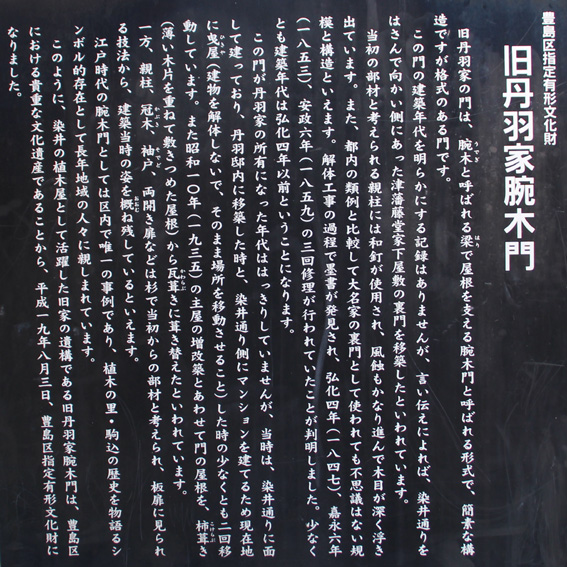 豊島区指定有形文化財
旧丹羽家腕木門
旧丹羽家の門は、腕木と呼ばれる梁で屋根を支える腕木門と呼ばれる形式で、簡素な構
造ですが格式のある門です。
この門の建築年代を明らかにする記録はありませんが、言い伝えによれば、染井通りを
はさんで向かい側にあった津藩藤堂家下屋敷の裏門を移築したといわれています。
当初の部材と考えられる親柱には和釘が使用され、風蝕もかなり進んで木目が深く浮き
出ています。また、都内の類例と比較して大名家の裏門として使われても不思議はない規
模と構造といえます。解体工事の過程で墨書が発見され、弘化四年(一八四七)、嘉永六年
(一八五三)、安政六年(一八五九)の三回修理が行われていたことが判明しました。少なく
とも建築年代は弘化四年以前ということになります。
この門が丹羽家の所有になった年代ははっきりしていませんが、当時は、染井通りに面
して建っており、丹羽邸内に移築した時と、染井通り側にマンションを建てるため現在地
に曳屋(建物を解体しないで、そのまま場所を移動させること)した時の少なくとも二回移
動しています。また昭和一〇年(一九三五)の主屋の増改築とあわせて門の屋根を、杮葺き
(薄い木片を重ねて敷きつめた屋根)から瓦葺きに葺き替えたといわれています。
一方、親柱、冠木、袖戸、両開き扉などは杉で当初からの部材と考えられ、板扉に見られ
る技法から、建築当時の姿を概ね残しているといえます。
江戸時代の腕木門としては区内で唯一の事例であり、植木の里・駒込の歴史を物語るシ
ンボル的存在として長年地域の人々に親しまれています。
このように、染井の植木屋として活躍した旧家の遺構である旧丹羽家腕木門は、豊島区
における貴重な文化遺産であることから、平成一九年八月三日、豊島区指定有形文化財に
なりました。